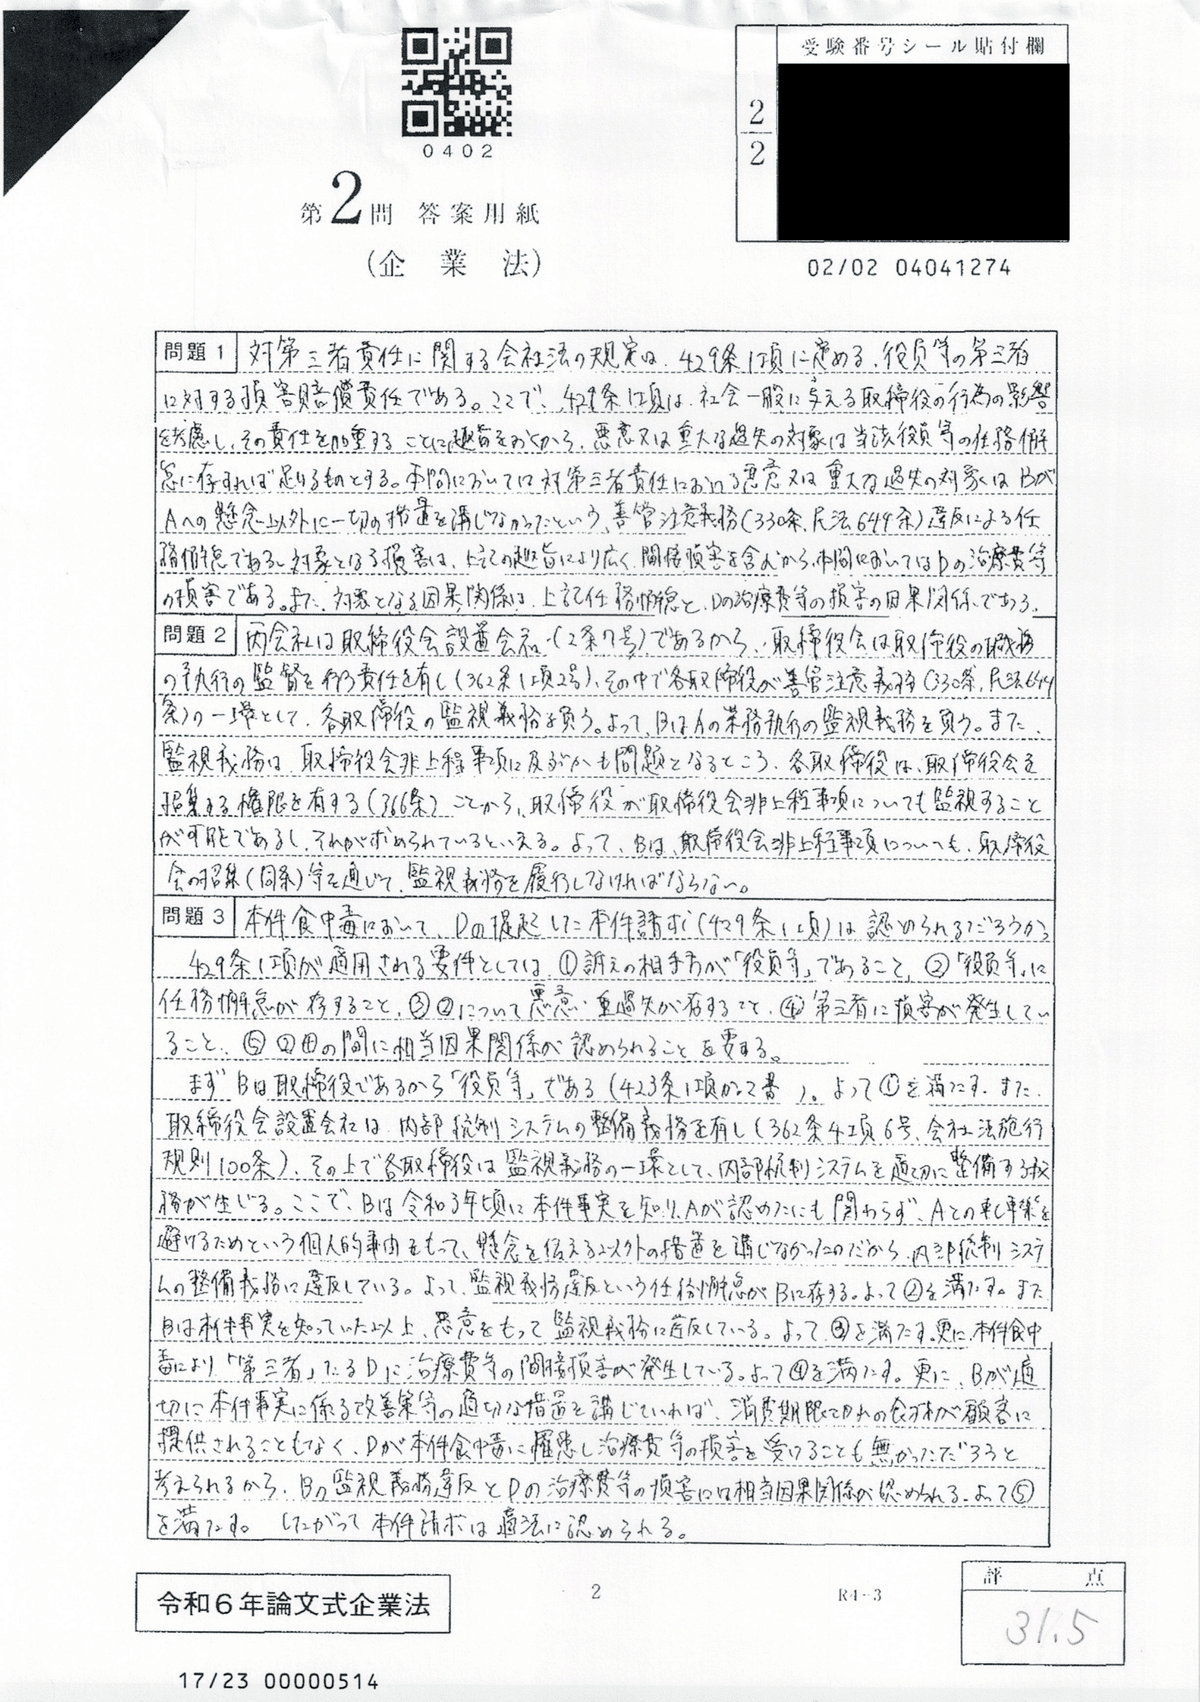 受験番号シール貼付欄
2/2
0402
第2問 答案用紙
(企業法)
02/02 04041274
問題1 対第三者責任に関する会社法の規定は、429条1項に定める、役員等の第三者
に対する損害賠償責任である。ここで、429条1項は、社会一般に与える取締役の行為の影響
を考慮し、その責任を加重することに趣旨をおくから、悪意又は重大な過失の対象は当該役員等の任務懈
怠に存すれば足りるものとする。本問においては対第三者責任における悪意又は重大な過失の対象はBが
Aへの懸念以外に一切の措置を講じなかったという、善管注意義務(330条、民法644条)違反による任
務懈怠である。対象となる損害は、上記の趣旨により広く間接損害を含むから、本問においてはDの治療費等
の損害である。また、対象となる因果関係は、上記任務懈怠と、Dの治療費等の損害の因果関係である。
問題2 丙会社は取締役会設置会社(2条7号)であるから、取締役会は取締役の職務
の執行の監督を行う責任を有し(362条1項2号)、その中で各取締役が善管注意義務(330条、民法644
条)の一環として、各取締役の監視義務を負う。よって、BはAの業務執行の監視義務を負う。また、
監視義務は、取締役会非上程事項に及ぶかも問題となるところ、各取締役は、取締役会を
招集する権限を有する(366条)ことから、取締役が取締役会非上程事項についても監視すること
が可能であるし、それが求められているといえる。よって、Bは、取締役会非上程事項についても、取締役
会の招集(同条)等を通じて、監視義務を履行しなければならない。
問題3 本件食中毒において、Dの提起した本件請求(429条1項)は認められるだろうか。
429条1項が適用される要件としては、①訴えの相手方が「役員等」であること、②「役員等」に
任務懈怠が存すること、③②について悪意・重過失が存すること、④第三者に損害が発生してい
ること、⑤②④の間に相当因果関係が認められることを要する。
まずBは取締役であるから「役員等」である(423条1項かっこ書)。よって①を満たす。また、
取締役会設置会社は、内部統制システムの整備義務を有し(362条4項6号、会社法施行
規則100条)、その上で各取締役は監視義務の一環として、内部統制システムを適切に整備する義
務が生じる。ここで、Bは令和3年頃に本件事実を知り、Aが認めたにも関わらず、Aとの軋轢を
避けるためという個人的事由をもって、懸念を伝える以外の措置を講じなかったのだから、内部統制システ
ムの整備義務に違反している。よって、監視義務違反という任務懈怠がBに存する。よって②を満たす。また
Bは本件事実を知っていた以上、悪意をもって監視義務に違反している。よって③を満たす。更に、本件食中
毒により「第三者」たるDに治療費等の間接損害が発生している。よって④を満たす。更に、Bが適
切に本件事実に係る改善策等の適切な措置を講じていれば、消費期限切れの食材が顧客に
提供されることもなく、Dが本件食中毒に罹患し治療費等の損害を受けることも無かっただろうと
考えられるから、Bの監視義務違反とDの治療費等の損害には相当因果関係が認められる。よって⑤
を満たす。したがって本件請求は適法に認められる。
令和6年論文式企業法
2
R4-3
評 点
31.5
17/23 00000514